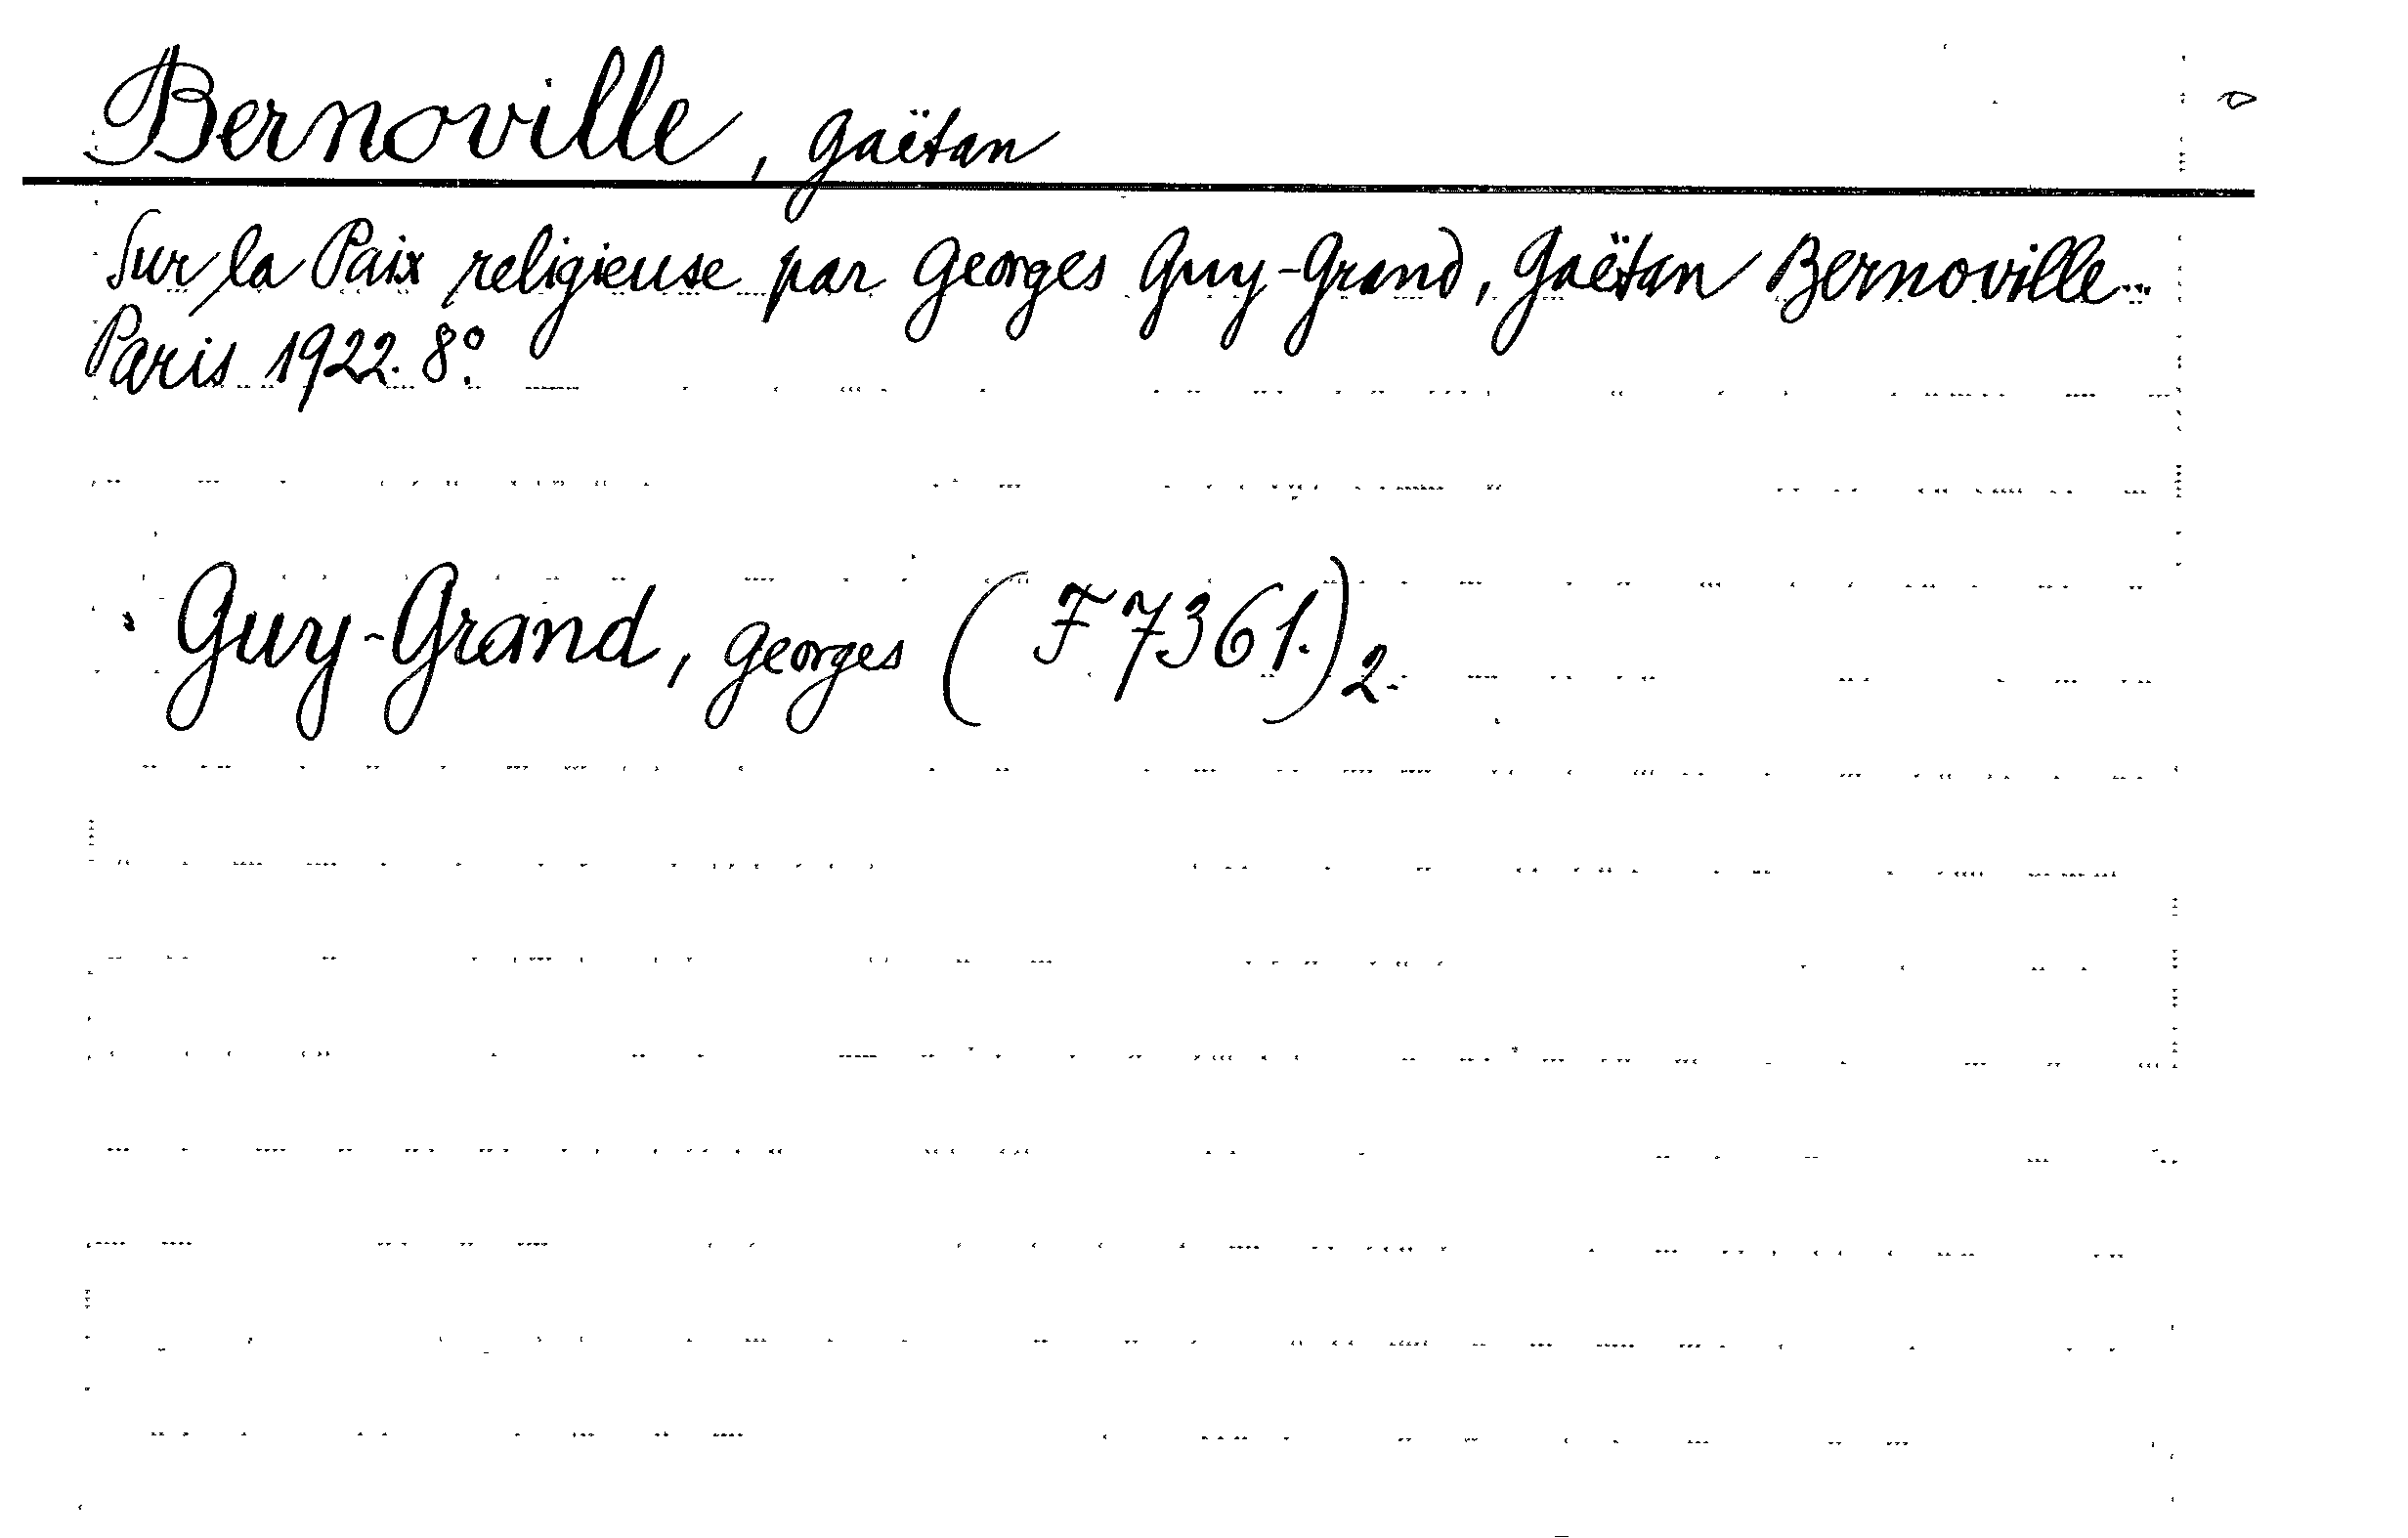 Bernoville, Gaëtan
Sur la Paix religieuse par Georges Guy-Grand, Gaëtan Bernoville...
Paris 1922. 8º.
Guy-Grand, Georges (F 7361.)2.